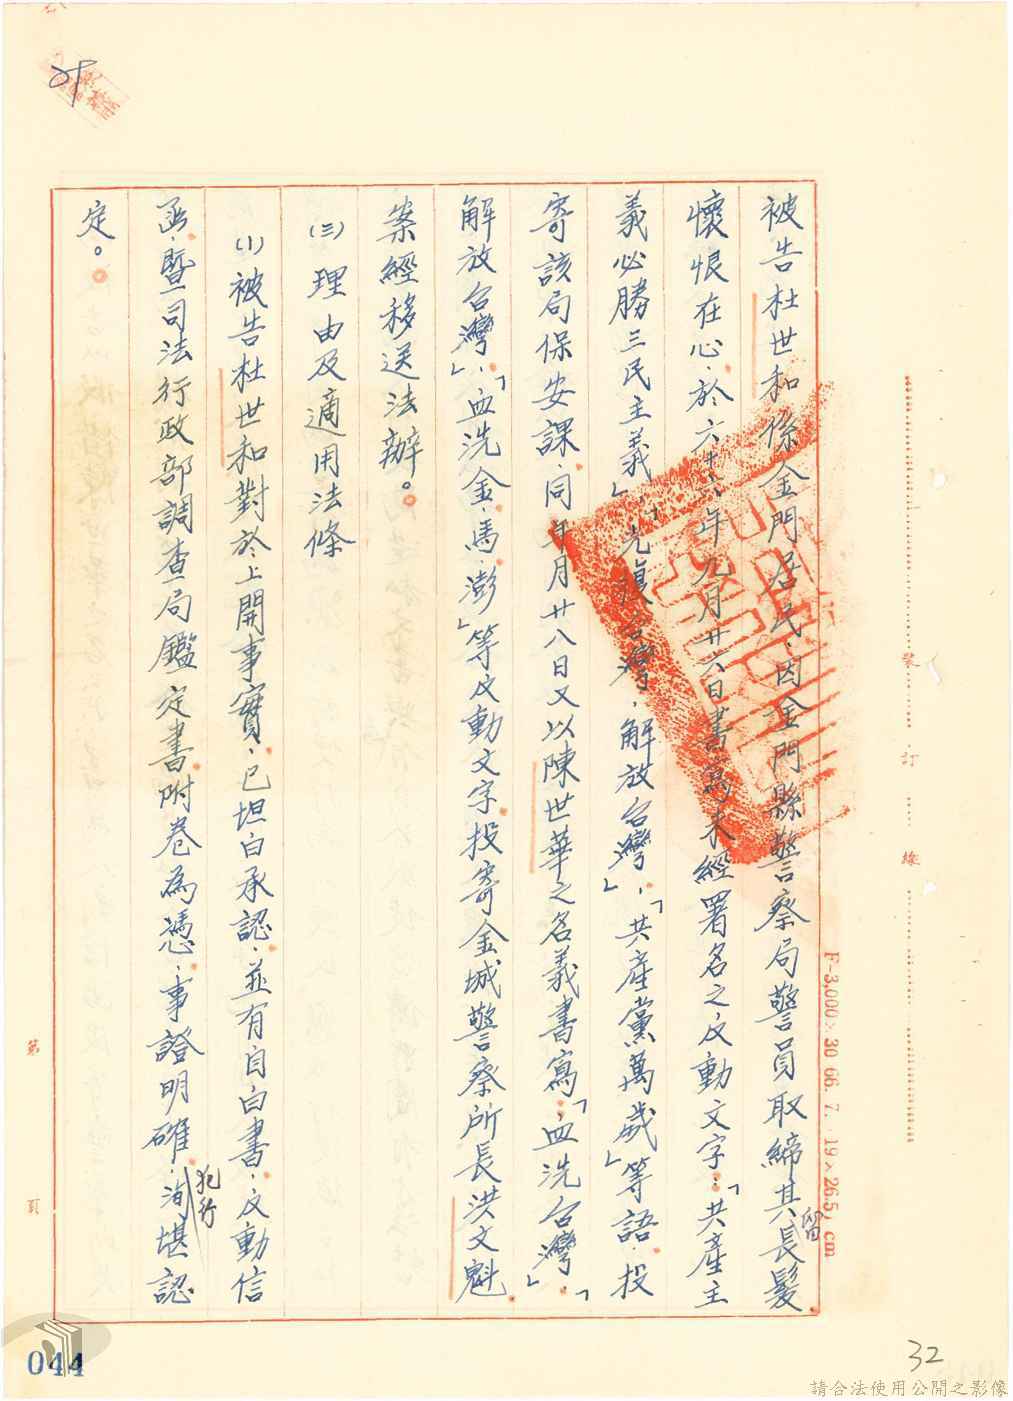 被告杜世和係金門居民，因金門縣警察局警員取締其留長髮
懷恨在心，於六十六年九月廿六日書寫未經署名之反動文字：「共產主
義必勝三民主義」，「光復台灣，解放台灣」，「共產黨萬歲」等語，投
寄該局保安課，同年月廿八日又以陳世華之名義書寫：「血洗台灣，」「
解放台灣」，「血洗金，馬，澎」等反動文字投寄金城警察所長洪文魁
案經移送法辦。
(三)理由及適用法條
(1)被告杜世和對於上開事實，已坦白承認，並有自白書，反動信
函，暨司法行政部調查局鑑定書附卷為憑，事證明確，犯行洵堪認
定。
裝
訂
線
F-3,000×30 66. 7. 19×26.5 cm
第 頁
044
32
請合法使用公開之影像